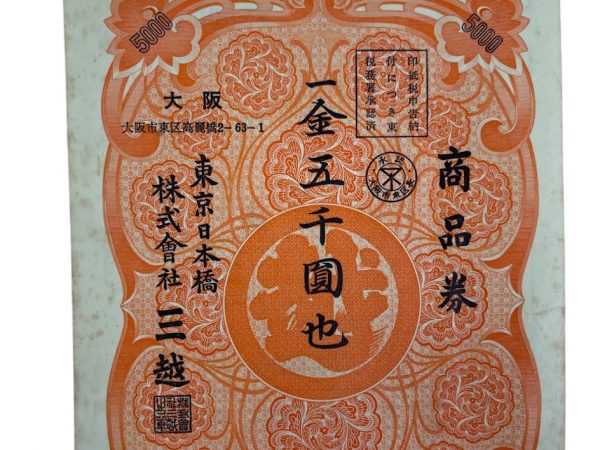 5000
5000
商品券
印紙税申告納
付につき東
税務署承認済
大阪市東区
一金五千圓也
大阪
大阪市東区高麗橋2-63-1
東京日本橋
株式會社 三越